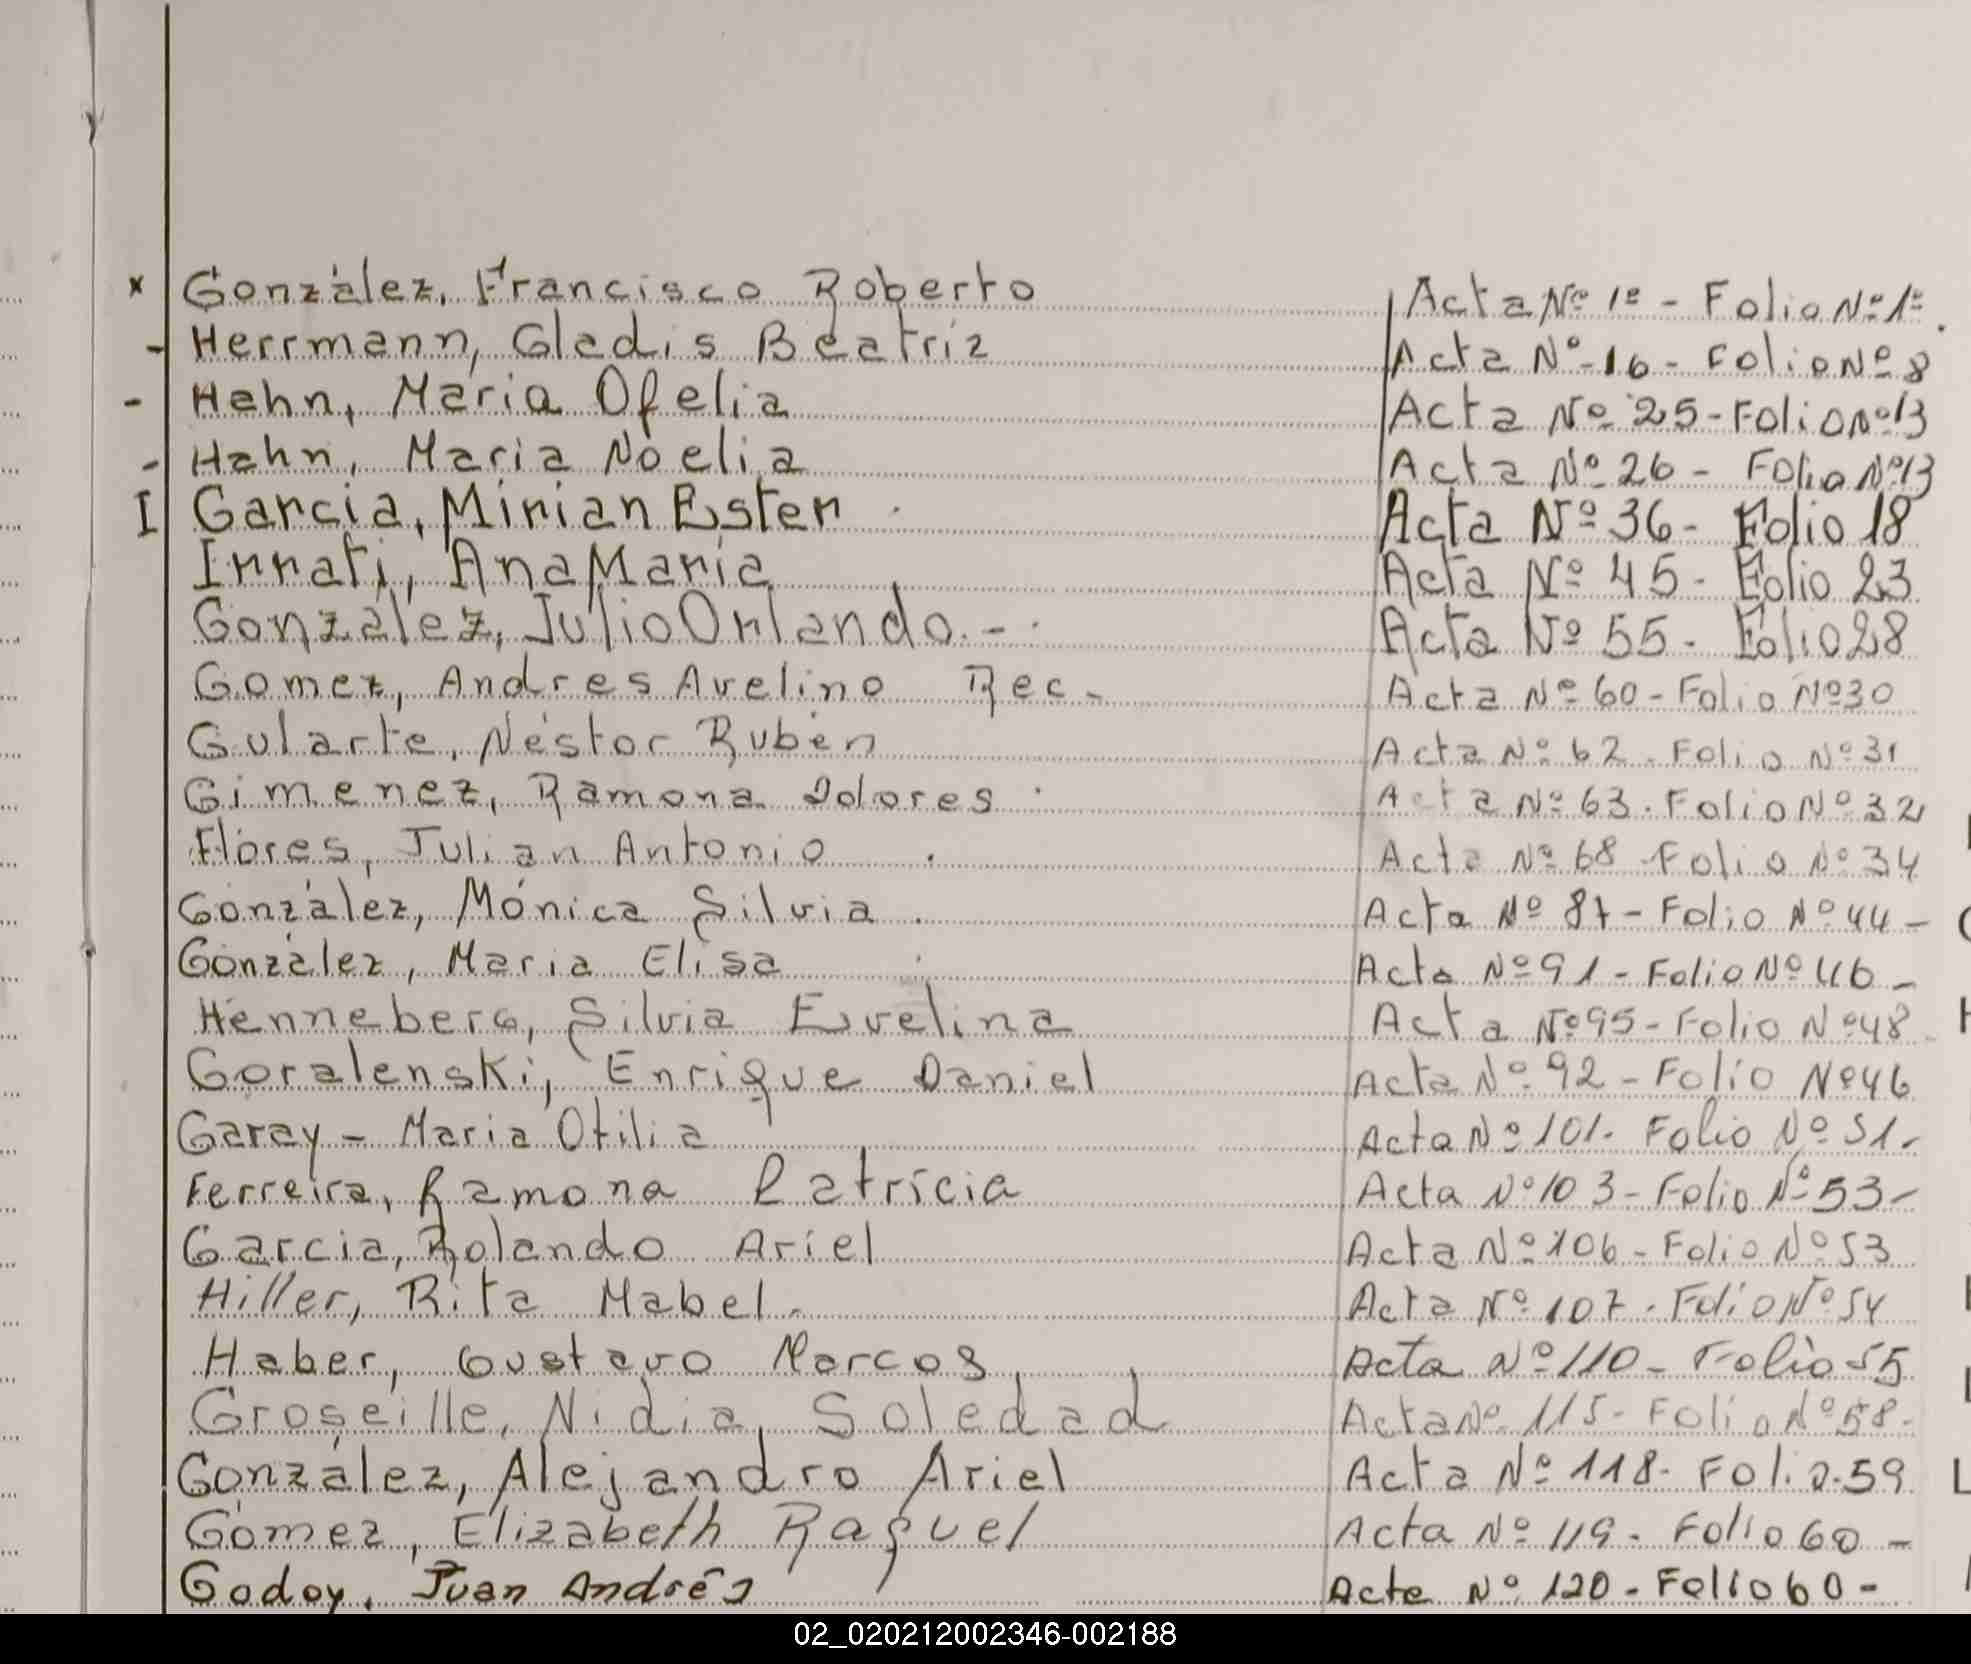 x González, Francisco Roberto Acta Nº 1º - Folio Nº 1º.
- Herrmann, Gladis Beatriz Acta Nº 16 - Folio Nº 8
- Hahn, María Ofelia Acta Nº 25 - Folio Nº 13
- Hahn, Maria Noelia Acta Nº 26 - Folio Nº 13
I Garcia, Mirian Ester Acta Nº 36 - Folio 18
Irrati, Ana Maria Acta Nº 45 - Folio 23
González, Julio Orlando. - Acta Nº 55 - Folio 28
Gomez, Andres Avelino Rec. Acta Nº 60 - Folio Nº 30
Gularte, Néstor Rubén Acta Nº 62 - Folio Nº 31
Gimenez, Ramona Dolores Acta Nº 63 - Folio Nº 32
Flores, Julian Antonio Acta Nº 68 - Folio Nº 34
González, Mónica Silvia Acta Nº 87 - Folio Nº 44 -
González, Maria Elisa Acta Nº 91 - Folio Nº 46 -
Henneberg, Silvia Evelina Acta Nº 95 - Folio Nº 48
Goralenski, Enrique Daniel Acta Nº 92 - Folio Nº 46
Garay - Maria Otilia Acta Nº 101 - Folio Nº 51 -
Ferreira, Ramona Patricia Acta Nº 103 - Folio Nº 53 -
Garcia, Rolando Ariel Acta Nº 106 - Folio Nº 53
Hiller, Rita Mabel. Acta Nº 107 - Folio Nº 54
Haber, Gustavo Marcos Acta Nº 110 - Folio 55
Groseille, Nidia Soledad Acta Nº 115 - Folio Nº 58 -
González, Alejandro Ariel Acta Nº 118 - Folio 59
Gómez, Elizabeth Raquel Acta Nº 119 - Folio 60 -
Godoy, Juan Andrés Acta Nº 120 - Folio 60 -
02_020212002346-002188